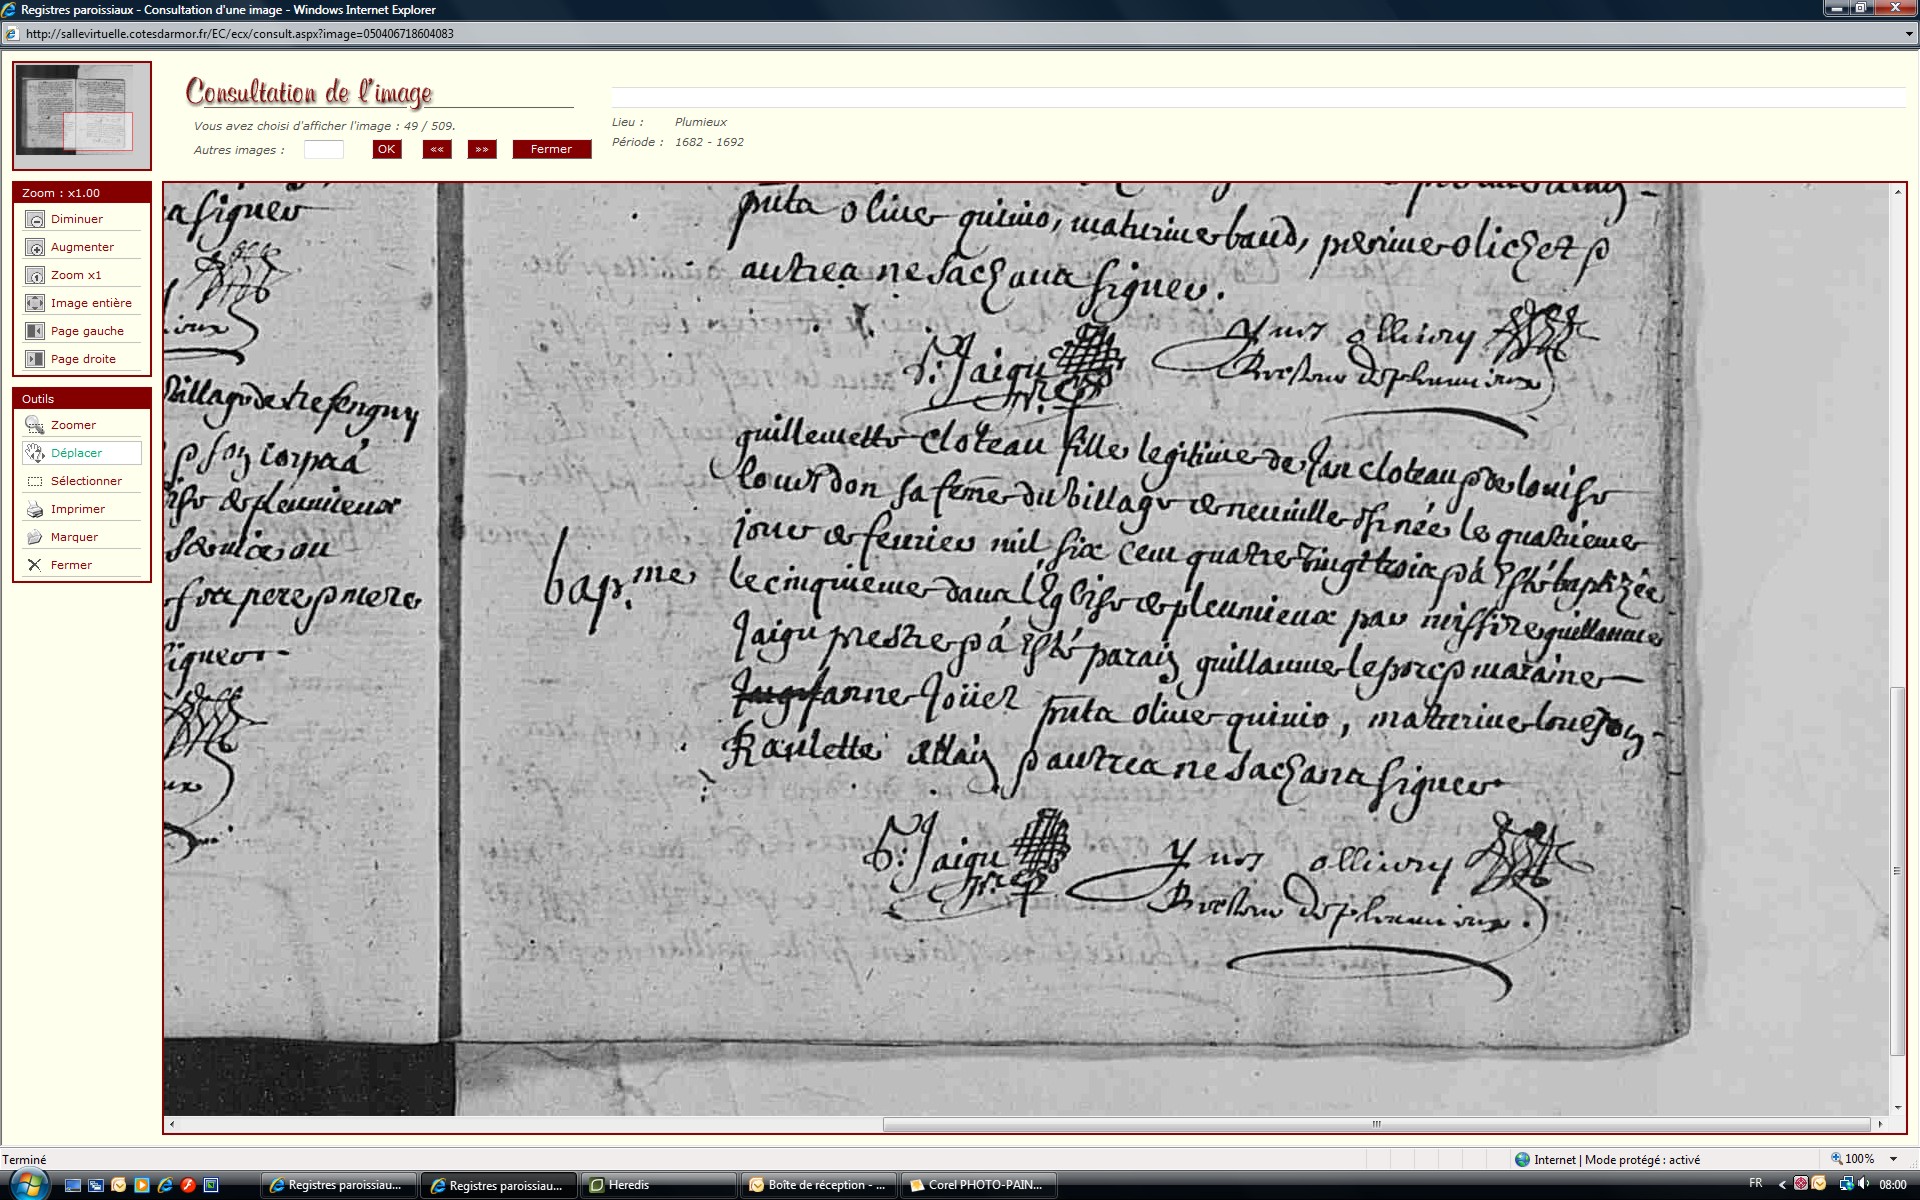 Registres paroissiaux - Consultation d'une image - Windows Internet Explorer
http://sallevirtuelle.cotesdarmor.fr/EC/ecx/consult.aspx?image=050406718604083
Consultation de l'image
Vous avez choisi d'afficher l'image : 49 / 509.
Autres images :
OK
««
»»
Fermer
Lieu : Plumieux
Période : 1682 - 1692
Zoom : x1.00
Diminuer
Augmenter
Zoom x1
Image entière
Page gauche
Page droite
Outils
Zoomer
Déplacer
Sélectionner
Imprimer
Marquer
Fermer
signer
village de
son corps a
de pleumieux
pere p mere
signer
pnts oliver quinio, maturine baud, perrine olichet p
autres ne sachans signer.
Jaigu
pre
Yves ollivry
Recteur de plumieux
bapme
guillemette cloteau fille legitime de Jan cloteau p de louise
lourdon sa feme du village de neuville née le quatrieme
jour de feurier mil six cens quatre vingt trois p a esté baptizée
le cinquieme dans l'Eglise de pleumieux par missire guillaume
Jaigu prestre p a esté parain guillaume le porc p maraine
anne Joüet pnts oliver quinio, maturine
Raulette allain p autres ne sachans signer
Jaigu
pre
Yves ollivry
Recteur de plumieux.
Terminé
Internet | Mode protégé : activé
100%
Registres paroissiau...
Registres paroissiau...
Heredis
Boîte de réception - ...
Corel PHOTO-PAIN...
FR
08:00